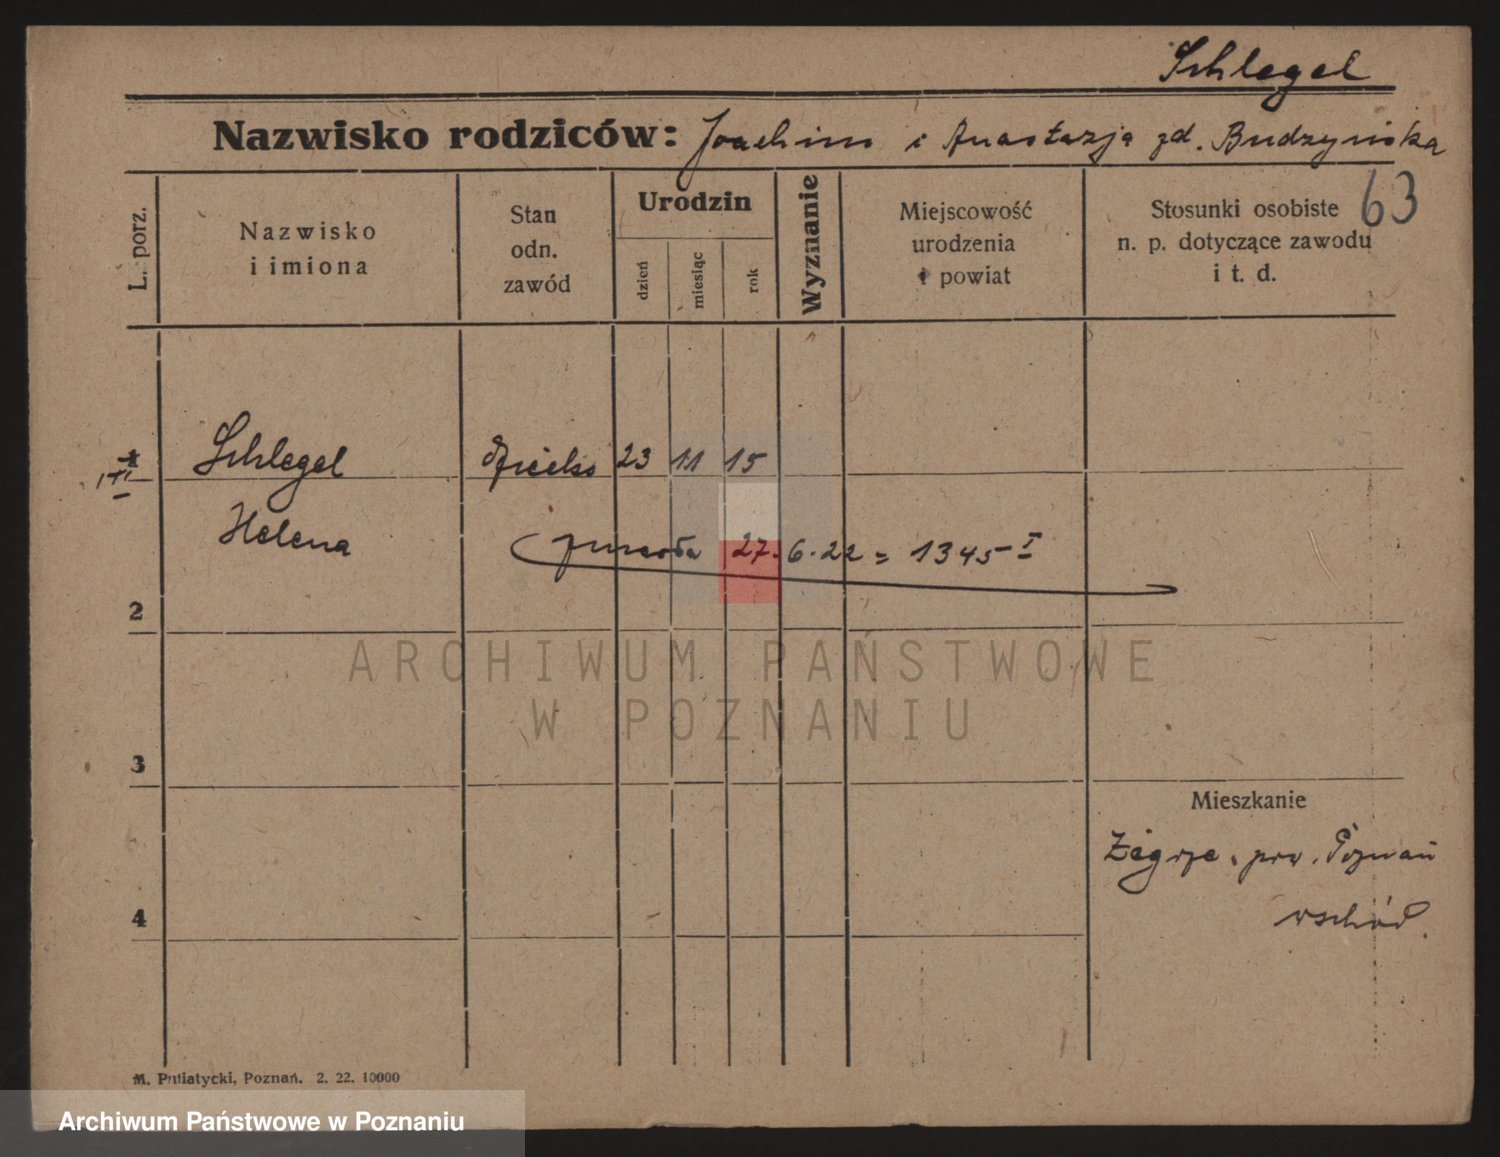 Schlegel
Nazwisko rodziców: Joachim i Anastazja zd. Budzyńska
63
L. porz.
Nazwisko
i imiona
Stan
odn.
zawód
Urodzin
dzień
miesiąc
rok
Wyznanie
Miejscowość
urodzenia
i powiat
Stosunki osobiste
n. p. dotyczące zawodu
i t. d.
Schlegel dziecko 23 11 15
Helena zmarła 27. 6. 22 = 1345 I
2
ARCHIWUM PAŃSTWOWE
W POZNANIU
3
Mieszkanie
Żegrze, pow. Poznań
wschód.
4
M. Putiatycki, Poznań. 2. 22. 10000
Archiwum Państwowe w Poznaniu